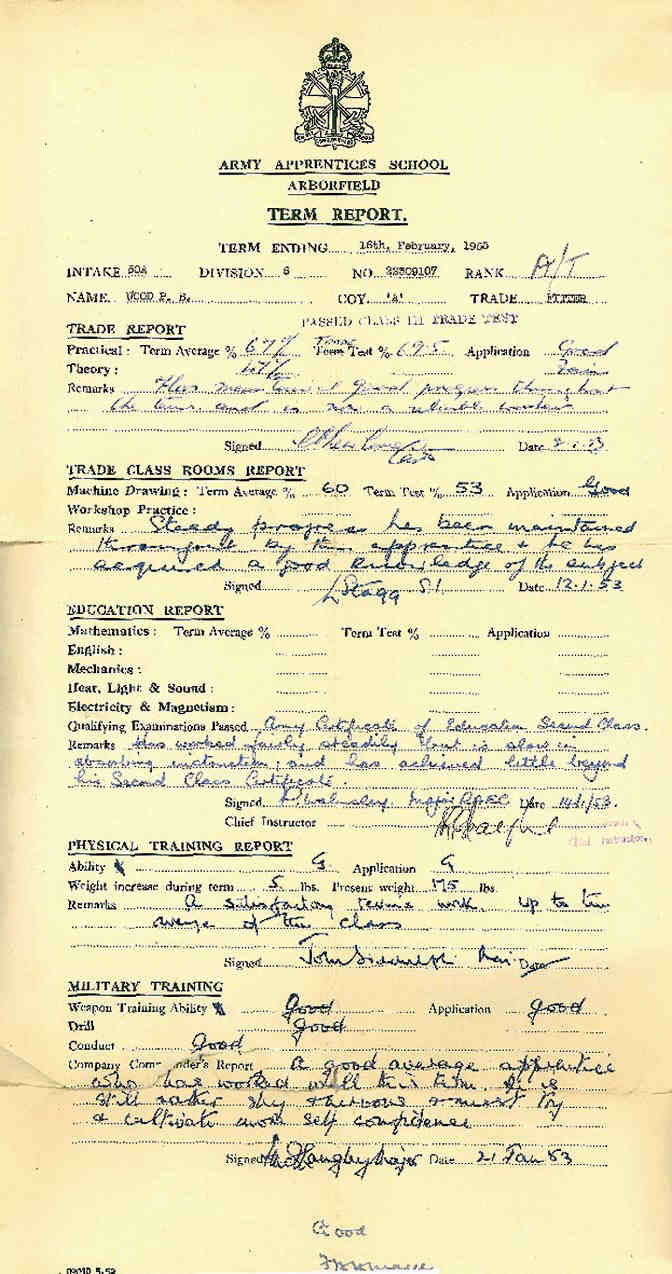 ARMY APPRENTICES SCHOOL
ARBORFIELD
TERM REPORT.
TERM ENDING 16th, February, 1953
INTAKE 50A DIVISION 6 NO. 22309107 RANK A/T
NAME. WOOD P. COY. 'A' TRADE FITTER
PASSED CLASS III TRADE TEST
TRADE REPORT
Practical : Term Average % 67% Trade Test % 69.5 Application Good
Theory : Fair
Remarks Has maintained good progress throughout
the term and is now a reliable worker
Signed Date
TRADE CLASS ROOMS REPORT
Machine Drawing : Term Average % 60 Term Test % 53 Application Good
Workshop Practice :
Remarks Steady progress has been maintained
throughout by this apprentice & he has
acquired a good knowledge of the subject
Signed L Stagg S.I. Date 12.1.53
EDUCATION REPORT
Mathematics : Term Average % Term Test % Application
English :
Mechanics :
Heat, Light & Sound :
Electricity & Magnetism :
Qualifying Examinations Passed Army Certificate of Education Second Class.
Remarks Has worked fairly steadily but is slow in
absorbing instruction, and has achieved little beyond
his Second Class Certificate.
Signed Major RAEC Date 14/1/53.
Chief Instructor
Chief Instructor
PHYSICAL TRAINING REPORT
Ability G Application G
Weight increase during term 5 lbs. Present weight 175 lbs.
Remarks A satisfactory terms work. Up to the
average of the class
Signed Date
MILITARY TRAINING
Weapon Training Ability Good Application good
Drill Good
Conduct Good
Company Commander's Report A good average apprentice
who has worked well this term. He is
still rather shy & nervous & must try
& cultivate more self confidence
Signed Major Date 21 Jan 53
Good